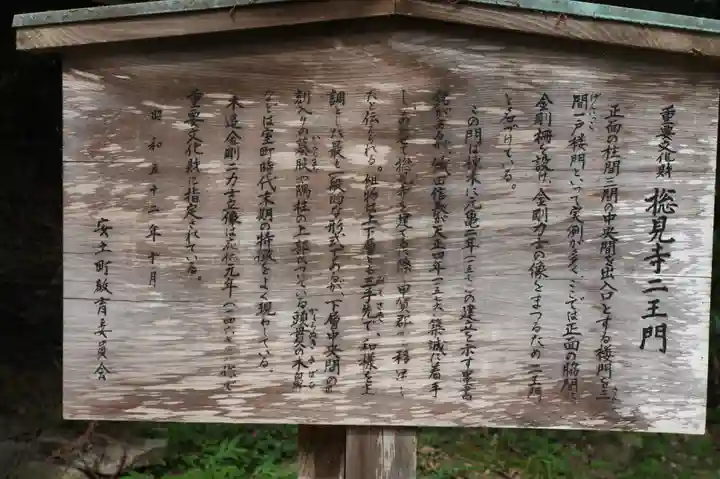 重要文化財 摠見寺二王門
正面の柱間三間の中央間を出入口とする楼門を三
げん こ
間一戸楼門といって実例が多く、ここでは正面の脇間に
金剛柵を設け、金剛力士の像をまつるため二王門
と名づけている。
この門は棟木に元亀二年(一五七一)の建立を示す墨書
織田信長が天正四年(一五七六)築城に着手
甲賀郡
たと伝えられる。組物は上下層とも三手先で、和様を主
調とした最も一般的な形式であるが、下層中央間の
刻入りの蟇股や隅柱の上部についている頭貫の木鼻
などは室町時代末期の特徴をよく現わしている。
木造金剛二力士立像は応仁元年(一四六七)の作で
重要文化財に指定されている。
昭和五十二年十月
安土町教育委員会